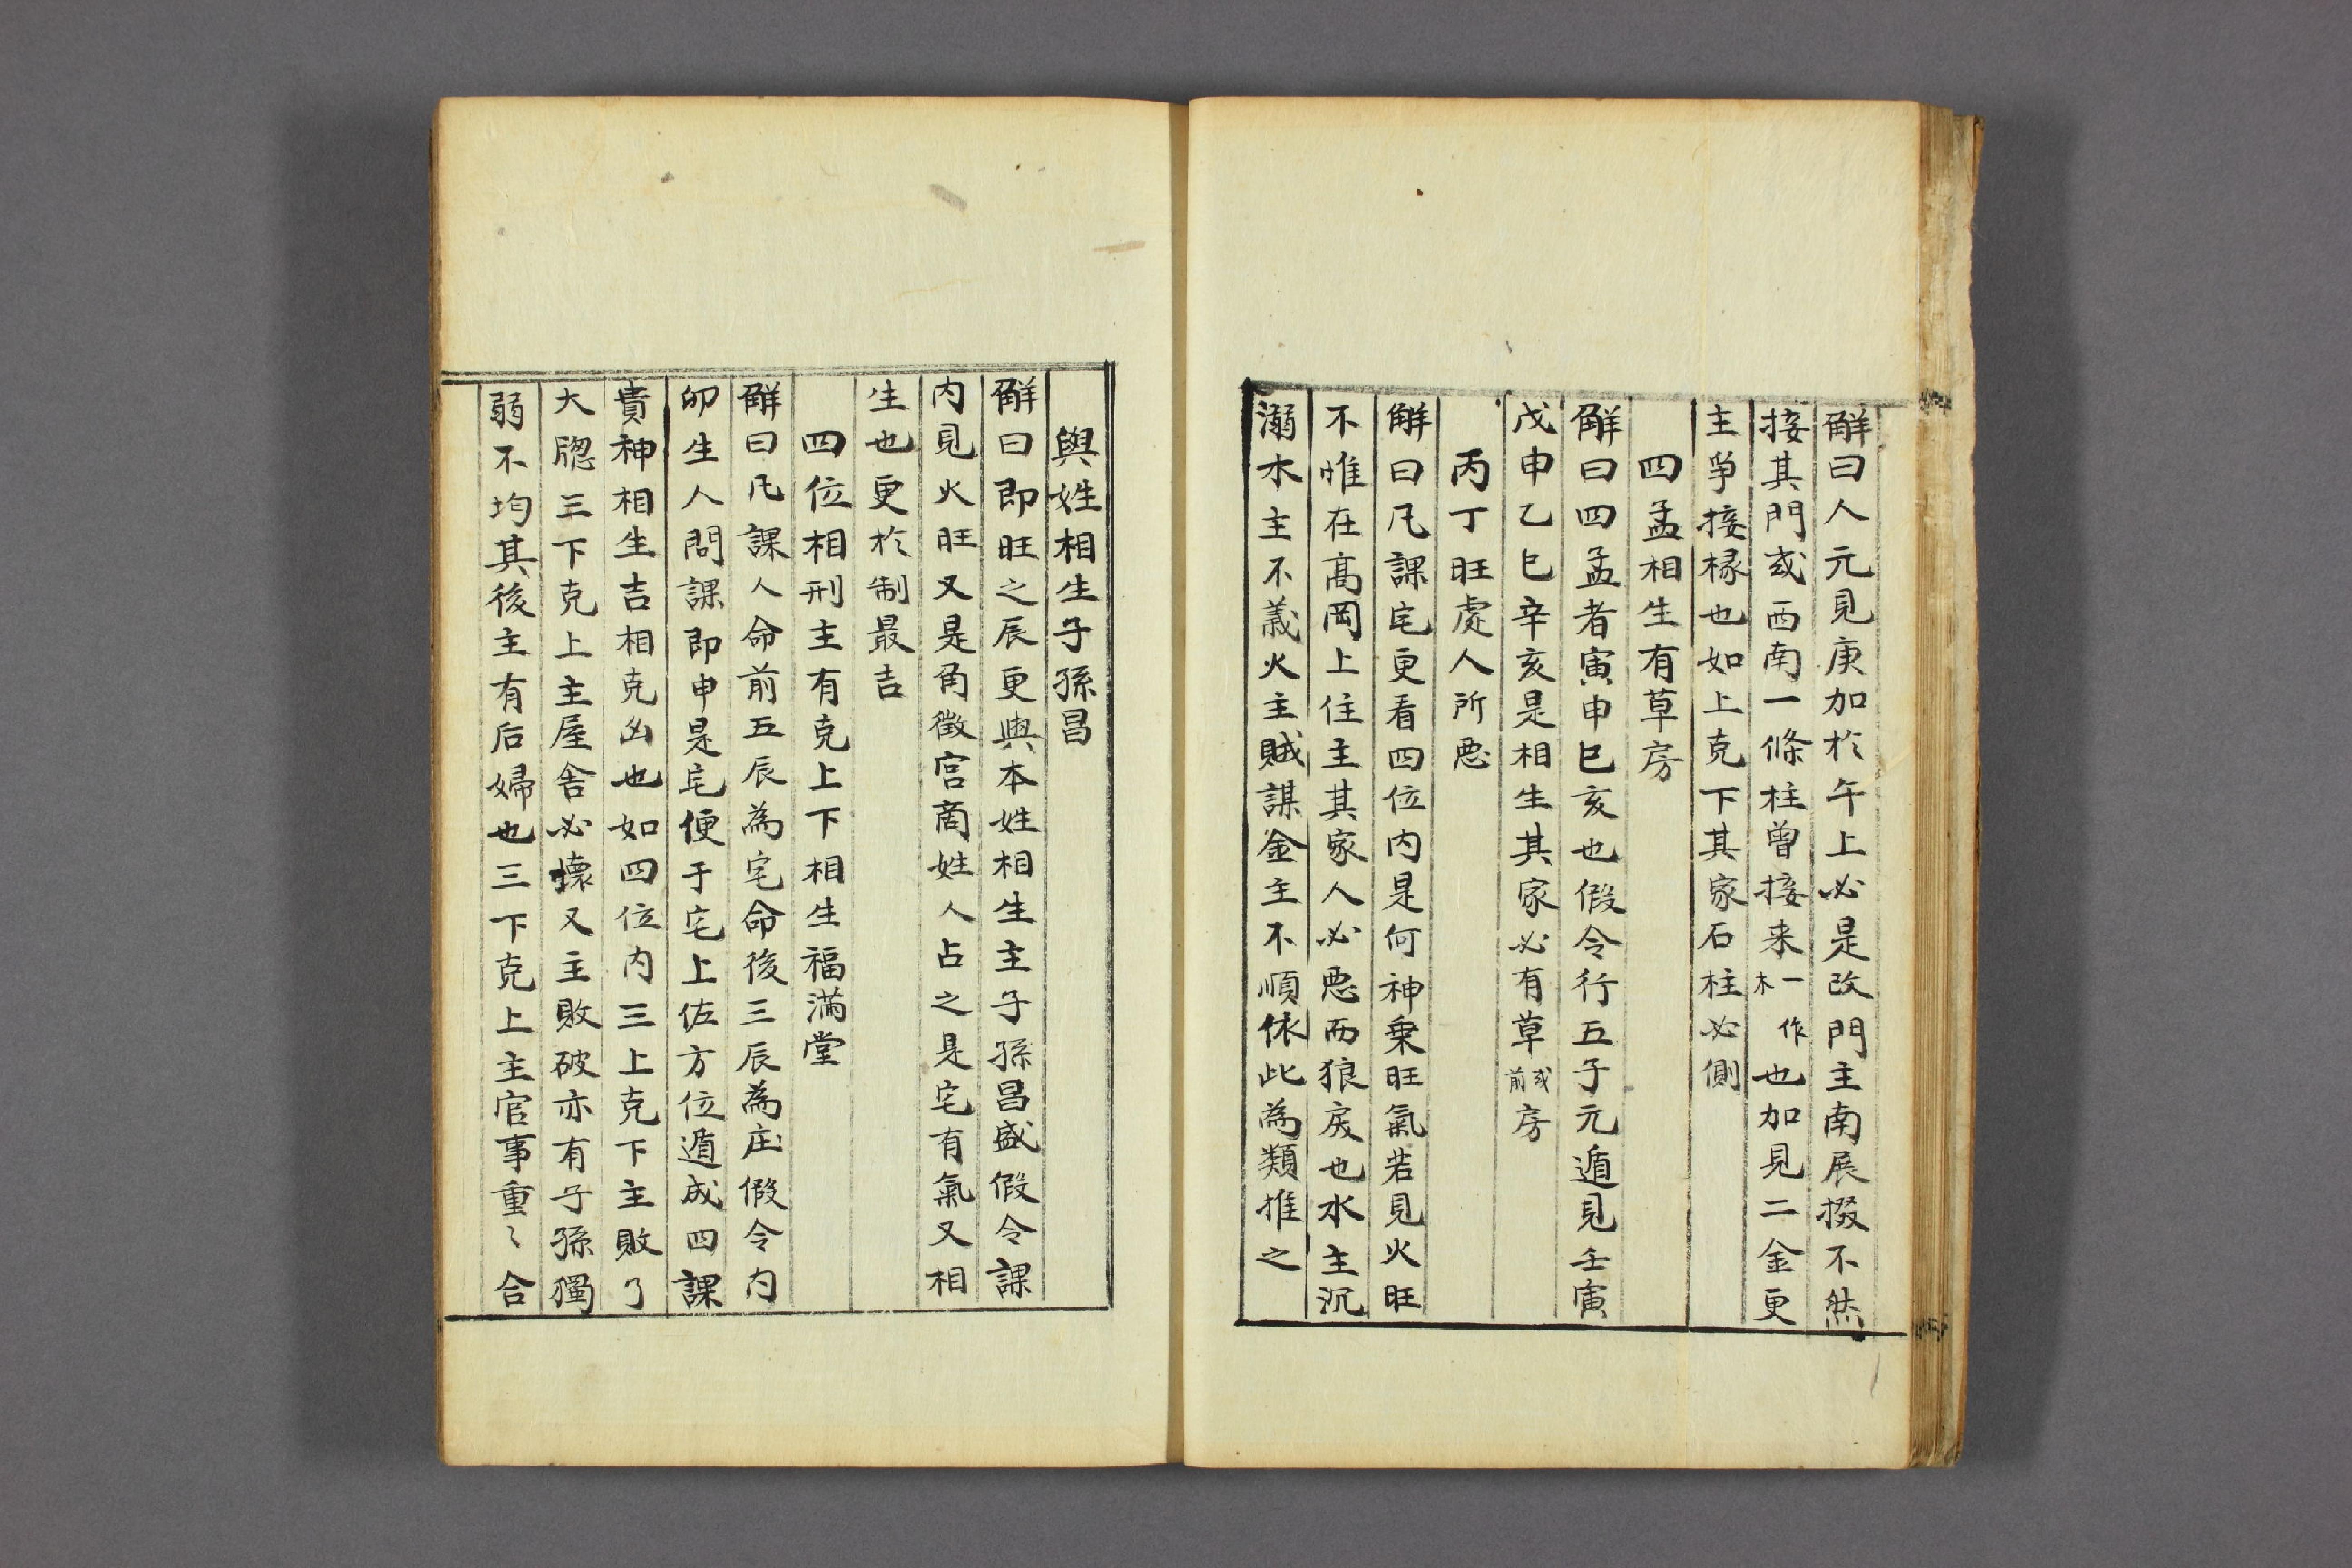 解曰人元見庚加於午上必是改門主南展掇不然
接其門或西南一條柱曾接来一作木也加見二金更
主爭接椽也如上克下其家石柱必側
四孟相生有草房
解曰四孟者寅申巳亥也假令行五子元遁見壬寅
戊申乙巳辛亥是相生其家必有草或前房
丙丁旺處人所惡
解曰凡課宅更看四位内是何神乗旺氣若見火旺
不惟在高岡上住主其家人必惡而狼戾也水主沉
溺木主不義火主賊謀金主不順依此為類推之
與姓相生子孫昌
解曰即旺之辰更與本姓相生主子孫昌盛假令課
内見火旺又是角徵宫商姓人占之是宅有氣又相
生也更於制最吉
四位相刑主有克上下相生福滿堂
解曰凡課人命前五辰為宅命後三辰為庄假令内
卯生人問課即申是宅便于宅上佐方位遁成四課
貴神相生吉相克凶也如四位内三上克下主敗了
大牎三下克上主屋舍必壞又主敗破亦有子孫獨
弱不均其後主有后婦也三下克上主官事重〻合